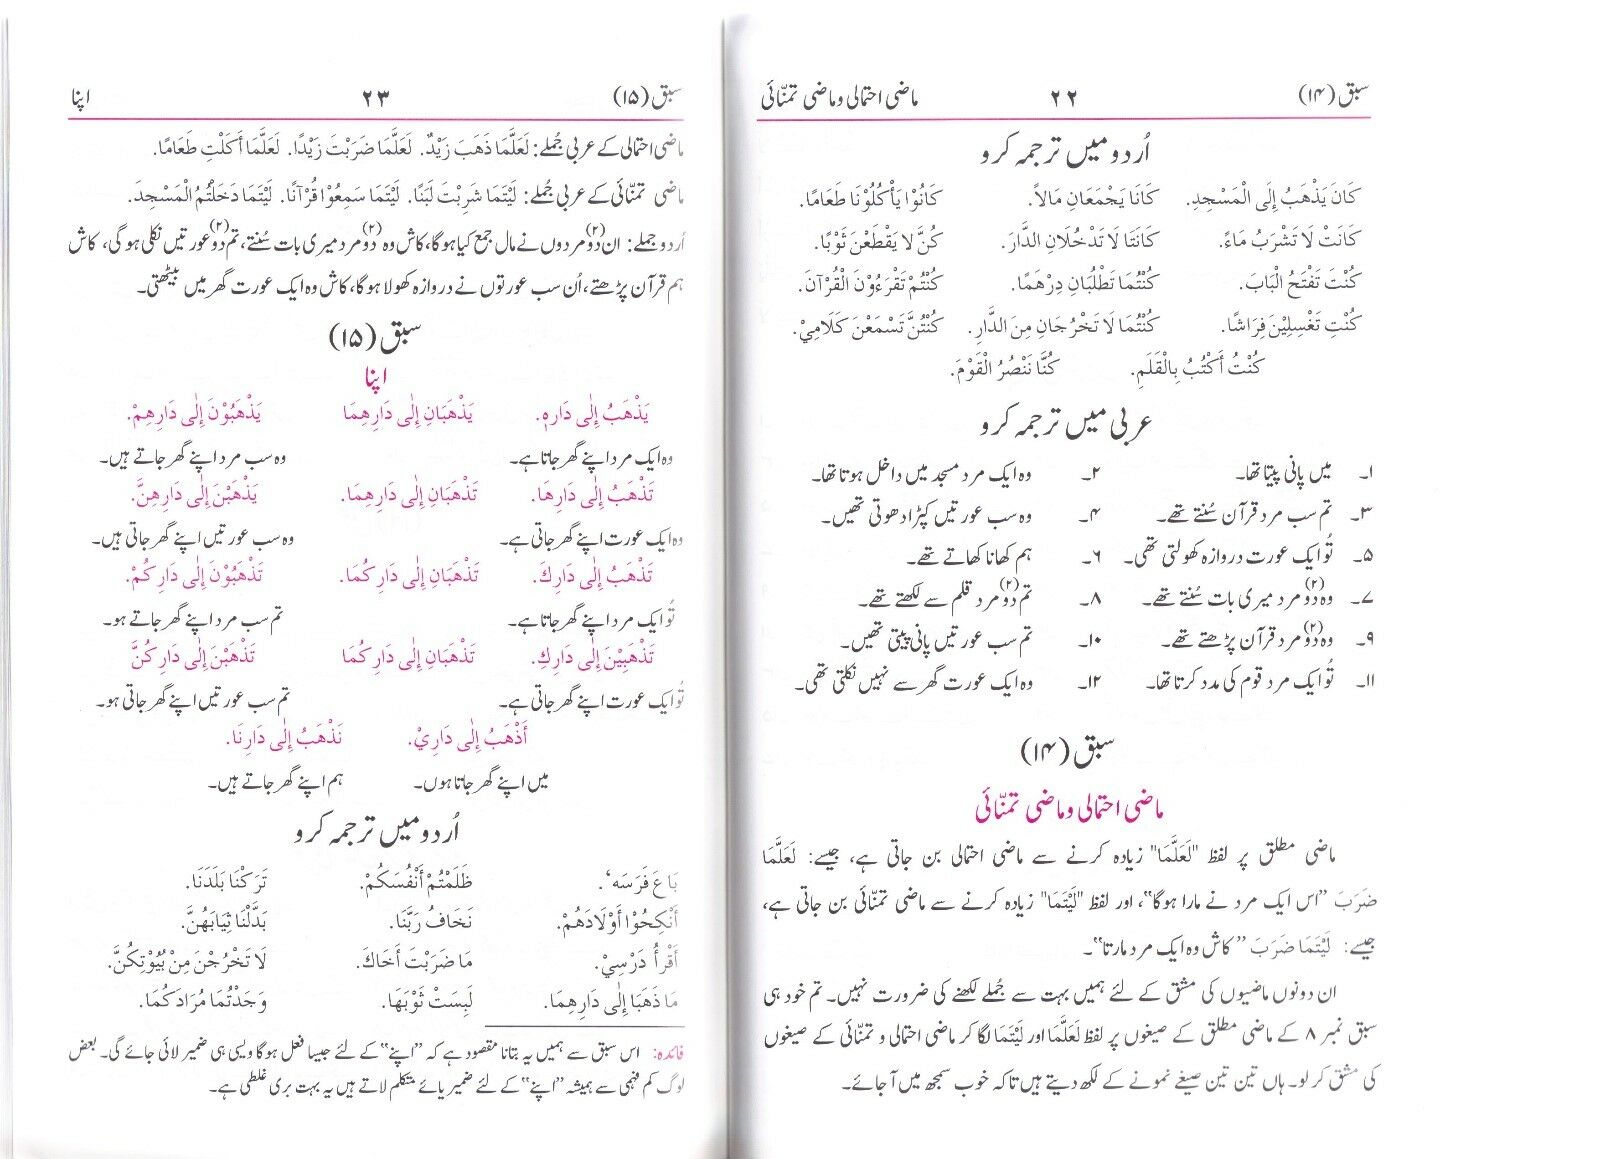 سبق (۱۴) ۲۲ ماضی احتمالی وماضی تمنّائی
اُردو میں ترجمہ کرو
كَانَ يَذْهَبُ إِلَى الْمَسْجِدِ. كَانَا يَجْمَعَانِ مَالاً. كَانُوْا يَأْكُلُوْنَ طَعَامًا.
كَانَتْ لَا تَشْرَبُ مَاءً. كَانَتَا لَا تَدْخُلَانِ الدَّارَ. كُنَّ لَا يَقْطَعْنَ ثَوْبًا.
كُنْتَ تَفْتَحُ الْبَابَ. كُنْتُمَا تَطْلُبَانِ دِرْهَمًا. كُنْتُمْ تَقْرَءُوْنَ الْقُرْآنَ.
كُنْتِ تَغْسِلِيْنَ فِرَاشًا. كُنْتُمَا لَا تَخْرُجَانِ مِنَ الدَّارِ. كُنْتُنَّ تَسْمَعْنَ كَلَامِيْ.
كُنْتُ أَكْتُبُ بِالْقَلَمِ. كُنَّا نَنْصُرُ الْقَوْمَ.
عربی میں ترجمہ کرو
۱۔ میں پانی پیتا تھا۔ ۲۔ وہ ایک مرد مسجد میں داخل ہوتا تھا۔
۳۔ تم سب مرد قرآن سُنتے تھے۔ ۴۔ وہ سب عورتیں کپڑا دھوتی تھیں۔
۵۔ تُو ایک عورت دروازہ کھولتی تھی۔ ۶۔ ہم کھانا کھاتے تھے۔
۷۔ وہ دو(۲) مرد میری بات سُنتے تھے۔ ۸۔ تم دو(۲) مرد قلم سے لکھتے تھے۔
۹۔ وہ دو(۲) مرد قرآن پڑھتے تھے۔ ۱۰۔ تم سب عورتیں پانی پیتی تھیں۔
۱۱۔ تُو ایک مرد قوم کی مدد کرتا تھا۔ ۱۲۔ وہ ایک عورت گھر سے نہیں نکلتی تھی۔
سبق (۱۴)
ماضی احتمالی وماضی تمنّائی
ماضی مطلق پر لفظ "لَعَلَّمَا" زیادہ کرنے سے ماضی احتمالی بن جاتی ہے، جیسے: لَعَلَّمَا
ضَرَبَ ”اس ایک مرد نے مارا ہوگا“، اور لفظ "لَيْتَمَا" زیادہ کرنے سے ماضی تمنّائی بن جاتی ہے،
جیسے: لَيْتَمَا ضَرَبَ ”کاش وہ ایک مرد مارتا“۔
ان دونوں ماضیوں کی مشق کے لئے ہمیں بہت سے جُملے لکھنے کی ضرورت نہیں۔ تم خود ہی
سبق نمبر ۸ کے ماضی مطلق کے صیغوں پر لفظ لَعَلَّمَا اور لَيْتَمَا لگا کر ماضی احتمالی و تمنّائی کے صیغوں
کی مشق کر لو۔ ہاں تین تین صیغے نمونے کے لکھ دیتے ہیں تاکہ خوب سمجھ میں آ جائے۔
سبق (۱۵) ۲۳ اپنا
ماضی احتمالی کے عربی جُملے: لَعَلَّمَا ذَهَبَ زَيْدٌ. لَعَلَّمَا ضَرَبْتَ زَيْدًا. لَعَلَّمَا أَكَلْتِ طَعَامًا.
ماضی تمنّائی کے عربی جُملے: لَيْتَمَا شَرِبْتَ لَبَنًا. لَيْتَمَا سَمِعُوْا قُرْآنًا. لَيْتَمَا دَخَلْتُمُ الْمَسْجِدَ.
اُردو جملے: ان دو(۲) مردوں نے مال جمع کیا ہوگا، کاش وہ دو(۲) مرد میری بات سُنتے، تم دو(۲) عورتیں نکلی ہوگی، کاش
ہم قرآن پڑھتے، اُن سب عورتوں نے دروازہ کھولا ہوگا، کاش وہ ایک عورت گھر میں بیٹھتی۔
سبق (۱۵)
اپنا
يَذْهَبُ إِلٰى دَارِهٖ. يَذْهَبَانِ إِلٰى دَارِهِمَا يَذْهَبُوْنَ إِلٰى دَارِهِمْ.
وہ ایک مرد اپنے گھر جاتا ہے۔ وہ سب مرد اپنے گھر جاتے ہیں۔
تَذْهَبُ إِلٰى دَارِهَا. تَذْهَبَانِ إِلٰى دَارِهِمَا. يَذْهَبْنَ إِلٰى دَارِهِنَّ.
وہ ایک عورت اپنے گھر جاتی ہے۔ وہ سب عورتیں اپنے گھر جاتی ہیں۔
تَذْهَبُ إِلٰى دَارِكَ. تَذْهَبَانِ إِلٰى دَارِكُمَا. تَذْهَبُوْنَ إِلٰى دَارِكُمْ.
تُو ایک مرد اپنے گھر جاتا ہے۔ تم سب مرد اپنے گھر جاتے ہو۔
تَذْهَبِيْنَ إِلٰى دَارِكِ. تَذْهَبَانِ إِلٰى دَارِكُمَا تَذْهَبْنَ إِلٰى دَارِكُنَّ
تُو ایک عورت اپنے گھر جاتی ہے۔ تم سب عورتیں اپنے گھر جاتی ہو۔
أَذْهَبُ إِلٰى دَارِيْ. نَذْهَبُ إِلٰى دَارِنَا.
میں اپنے گھر جاتا ہوں۔ ہم اپنے گھر جاتے ہیں۔
اُردو میں ترجمہ کرو
بَاعَ فَرَسَهٗ. ظَلَمْتُمْ أَنْفُسَكُمْ. تَرَكْنَا بَلَدَنَا.
أَنْكِحُوْا أَوْلَادَهُمْ. نَخَافُ رَبَّنَا. بَدَّلْنَا ثِيَابَهُنَّ.
أَقْرأُ دَرْسِيْ. مَا ضَرَبْتَ أَخَاكَ. لَا تَخْرُجْنَ مِنْ بُيُوْتِكُنَّ.
مَا ذَهَبَا إِلٰى دَارِهِمَا. لَبِسَتْ ثَوْبَهَا. وَجَدْتُمَا مُرَادَكُمَا.
فائدہ: اس سبق سے ہمیں یہ بتانا مقصود ہے کہ ”اپنے“ کے لئے جیسا فعل ہوگا ویسی ہی ضمیر لائی جائے گی۔ بعض
لوگ کم فہمی سے ہمیشہ ”اپنے“ کے لئے ضمیر یائے متکلم لاتے ہیں یہ بہت بری غلطی ہے۔